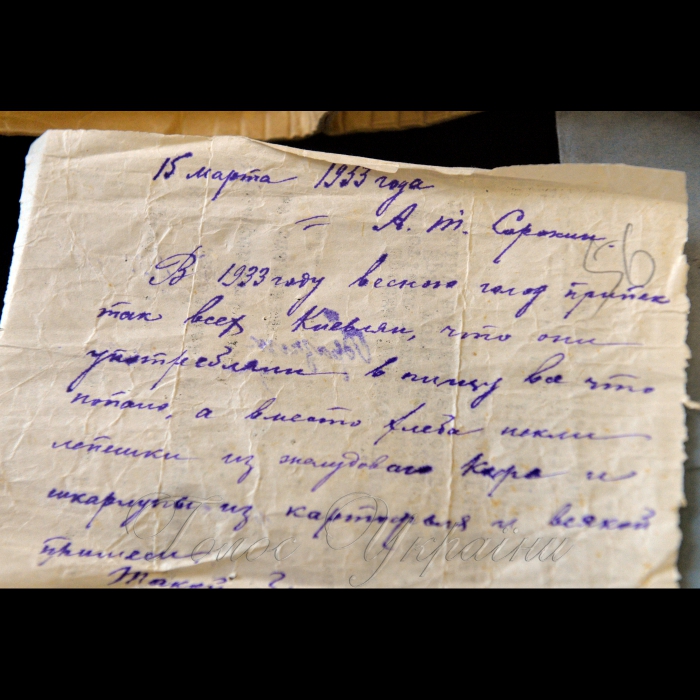 15 марта 1933 года
= А. Т. Сорокин.
56
В 1933 году весною голод припек
так всех Киевлян, что они
употребляли в пищу все что
попало, а вместо хлеба пекли
лепешки из жолудоваго кофе и
шкарлупы из картофеля и всякой
примеси.
Такой
Голос України